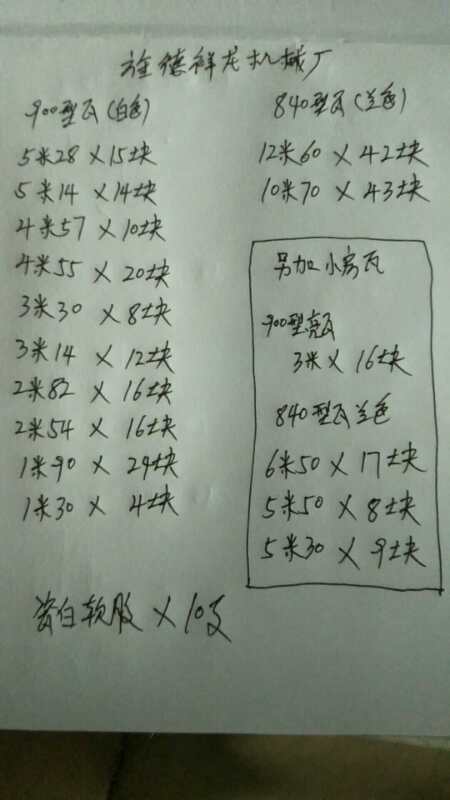 旌德祥龙机械厂
900型瓦(白色)
5米28 × 15块
5米14 × 14块
4米57 × 10块
4米55 × 20块
3米30 × 8块
3米14 × 12块
2米82 × 16块
2米54 × 16块
1米90 × 29块
1米30 × 4块
840型瓦(兰色)
12米60 × 42块
10米70 × 43块
另加小房瓦
900型亮瓦
3米 × 16块
840型瓦兰色
6米50 × 17块
5米50 × 8块
5米30 × 9块
瓷白软胶 × 10支